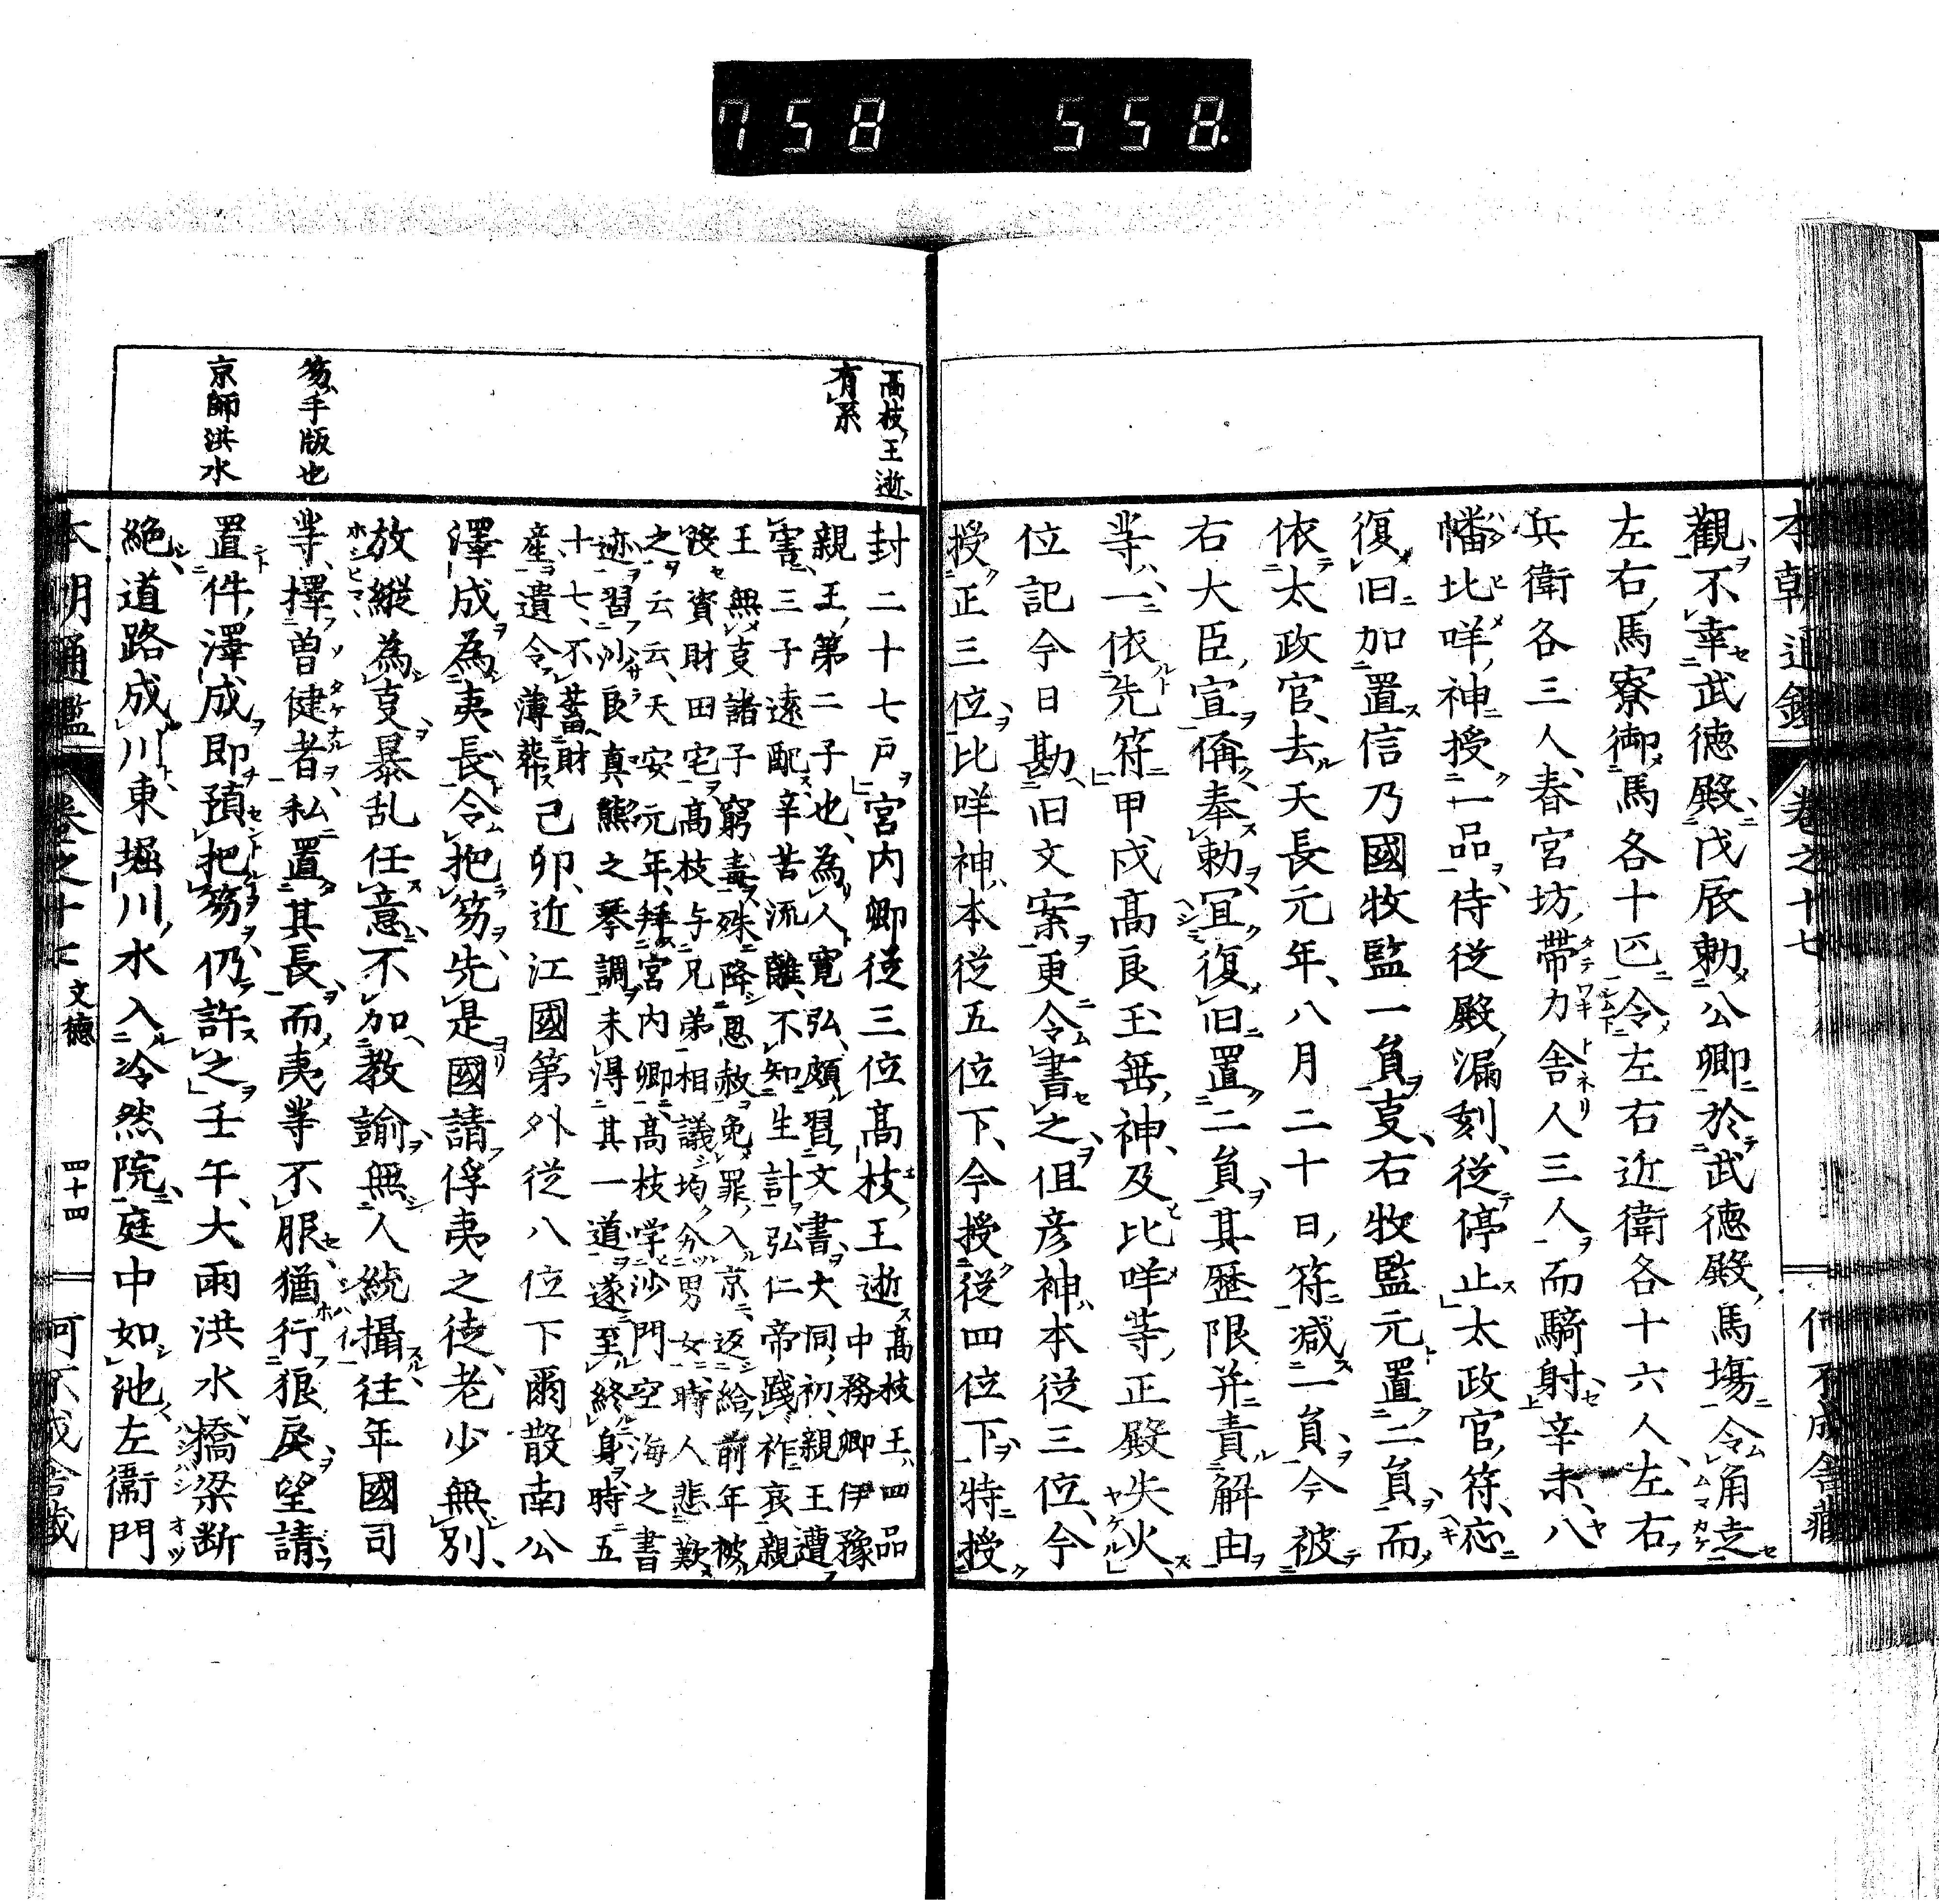 758 558.
本朝通鑑 卷之十七
觀不幸武德殿戊辰勅公卿於武德殿馬場令角走
左右馬寮御馬各十匹令左右近衛各十六人左右
兵衛各三人春宮坊帶刀舍人三人而騎射辛未八
幡比咩神授一品侍從殿漏刻從停止太政官符應
復旧加置信乃國牧監一員叓右牧監元置二員而
依太政官去天長元年八月二十日符减一員今被
右大臣宣偁奉勅冝復旧置二員其歷限并責解由
䒭一依先符甲戌髙良玉垂神及比咩䒭正殿失火
位記今日勘旧文案更令書之但彦神本從三位今
授正三位比咩神本從五位下今授從四位下特授
封二十七戸宮内卿從三位髙枝王逝
髙枝王四品
中務卿伊豫
親王第二子也為人寬弘頗習文書大同初親王遭
害三子遠配辛苦流離不知生計弘仁帝踐祚哀親
王無叓諸子窮毒殊降恩赦免罪入京返給前年被
収資財田宅髙枝与兄弟相議均分男女時人悲歎
之云云天安元年拜宮内卿髙枝学沙門空海之書
迹習沙良真熊之琴調未得其一道遂至終身時五
十七不蓄財
産遺令薄葬
己卯近江國第外從八位下爾散南公
澤成為夷長令把笏先是國請俘夷之徒老少無別
放縱為叓暴乱任意不加教諭無人統攝往年國司
䒭擇曽健者私置其長而夷䒭不服猶行狼戾望請
置件澤成即預把笏仍許之壬午大雨洪水橋梁断
絶道路成川東堀川水入冷然院庭中如池左衞門
髙枝王逝
有系
笏手版也
京師洪水
本朝通鑑 卷之十七 文德 四十四